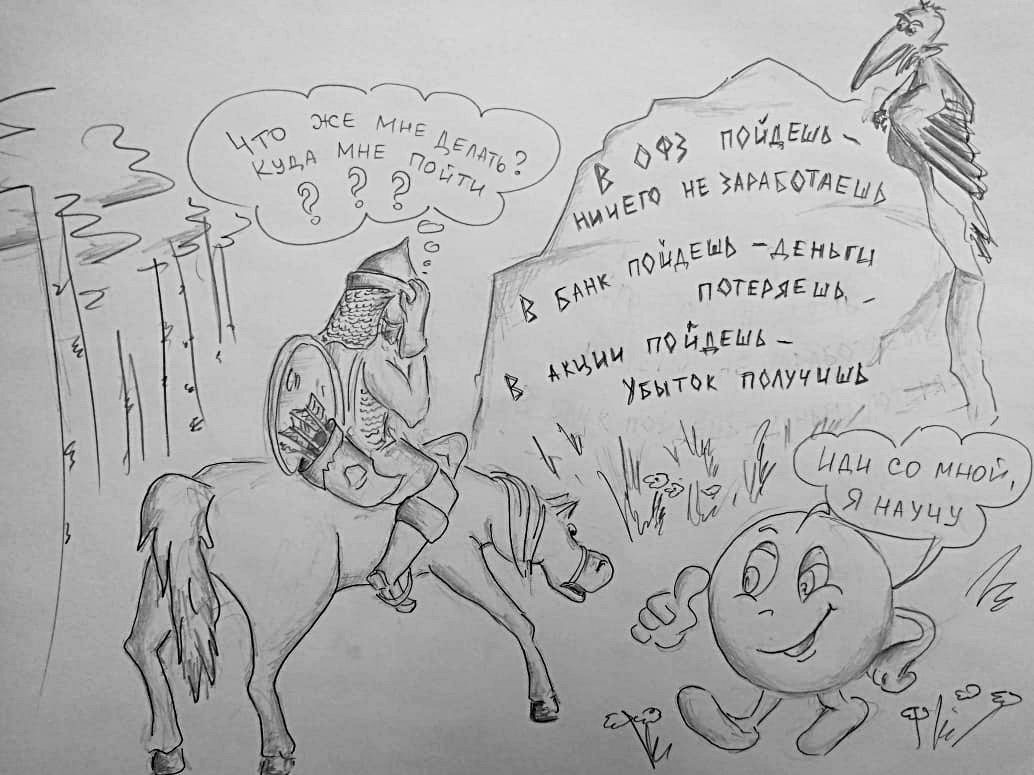 ЧТО ЖЕ МНЕ ДЕЛАТЬ?
КУДА МНЕ ПОЙТИ
? ? ?
В ОФЗ ПОЙДЕШЬ -
НИЧЕГО НЕ ЗАРАБОТАЕШЬ
В БАНК ПОЙДЕШЬ - ДЕНЬГИ
ПОТЕРЯЕШЬ -
В АКЦИИ ПОЙДЕШЬ -
УБЫТОК ПОЛУЧИШЬ
ИДИ СО МНОЙ,
Я НАУЧУ